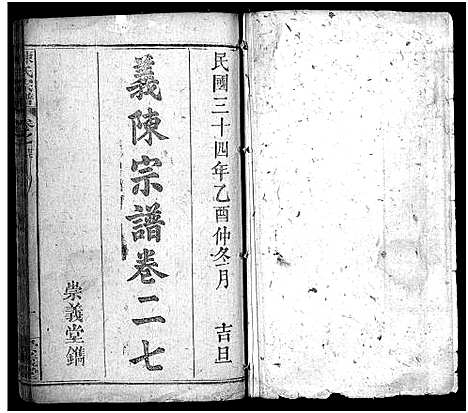 民國三十四年乙酉仲冬月　吉旦
義陳宗譜卷二七
崇義堂鐫
陳氏宗譜